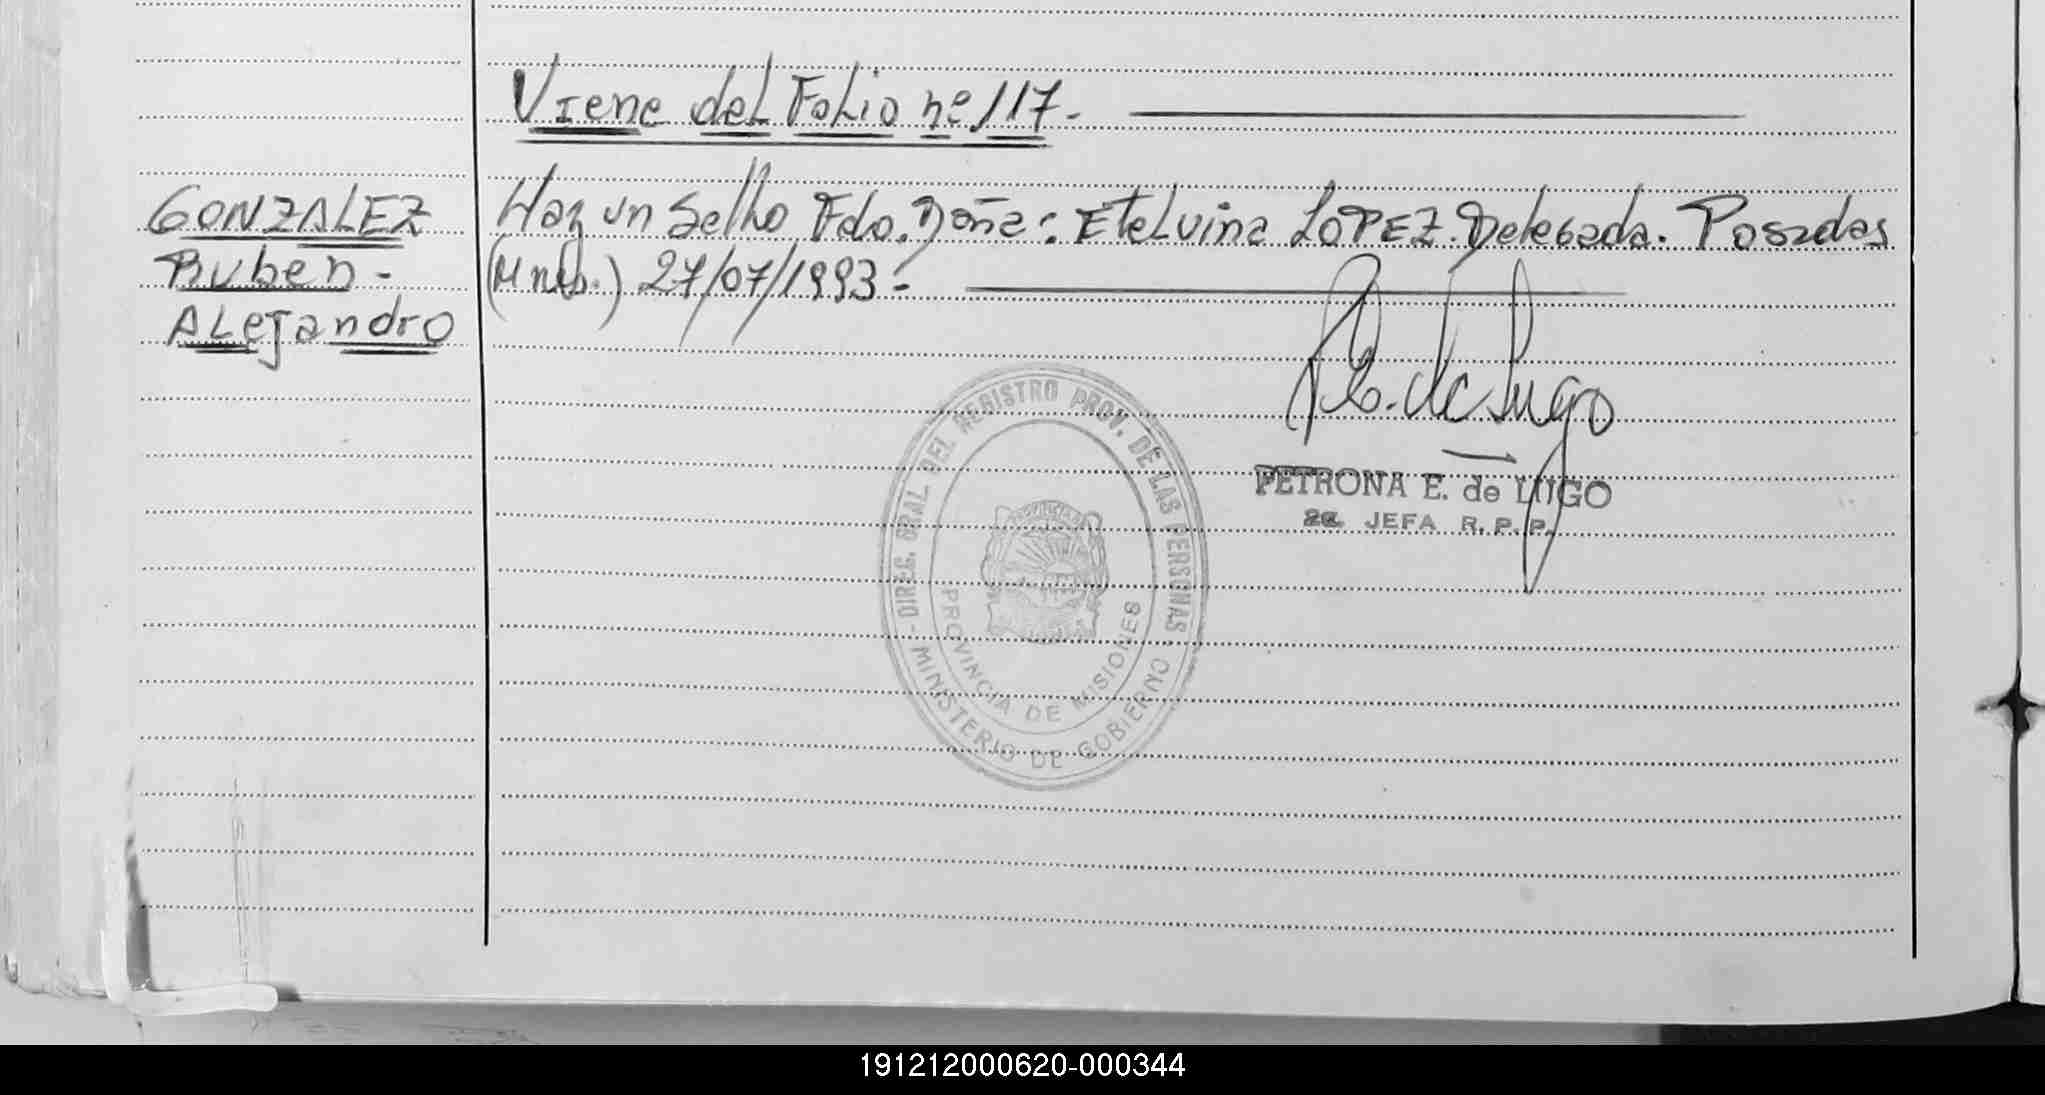 Viene del Folio nº 117.-
GONZALEZ
Ruben -
Alejandro
Hay un Sello Fdo. Doña: Etelvina LOPEZ. Delegada. Posadas
(Mnes.) 27/07/1993 -
P. E. de Lugo
PETRONA E. de LUGO
2a. JEFA R. P. P.
- DIREC. GRAL DEL REGISTRO PROV. DE LAS PERSONAS -
MINISTERIO DE GOBIERNO
PROVINCIA DE MISIONES
191212000620-000344